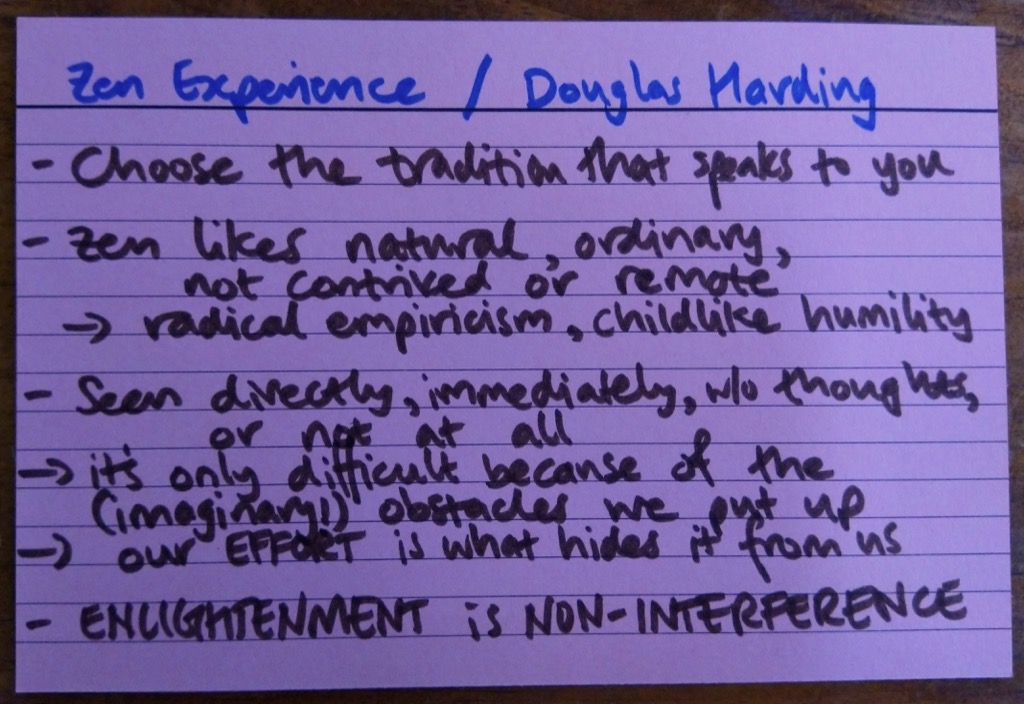 Zen Experience / Douglas Harding
- Choose the tradition that speaks to you
- Zen likes natural, ordinary,
not contrived or remote
→ radical empiricism, childlike humility
- Seen directly, immediately, w/o thoughts,
or not at all
→ it's only difficult because of the
(imaginary!) obstacles we put up
→ our EFFORT is what hides it from us
- ENLIGHTENMENT is NON-INTERFERENCE